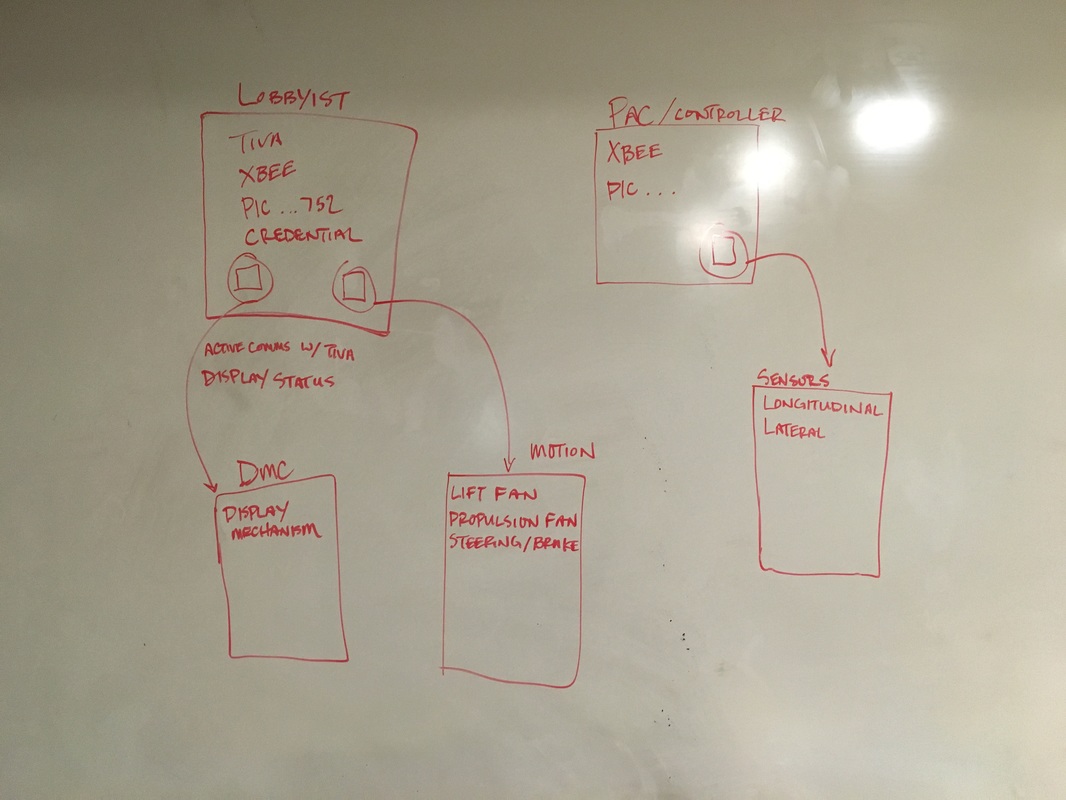 LOBBYIST
TIVA
XBEE
PIC ... 752
CREDENTIAL
ACTIVE COMMS W/ TIVA
DISPLAY STATUS
DMC
DISPLAY
MECHANISM
MOTION
LIFT FAN
PROPULSION FAN
STEERING/BRAKE
PAC/CONTROLLER
XBEE
PIC ...
SENSORS
LONGITUDINAL
LATERAL